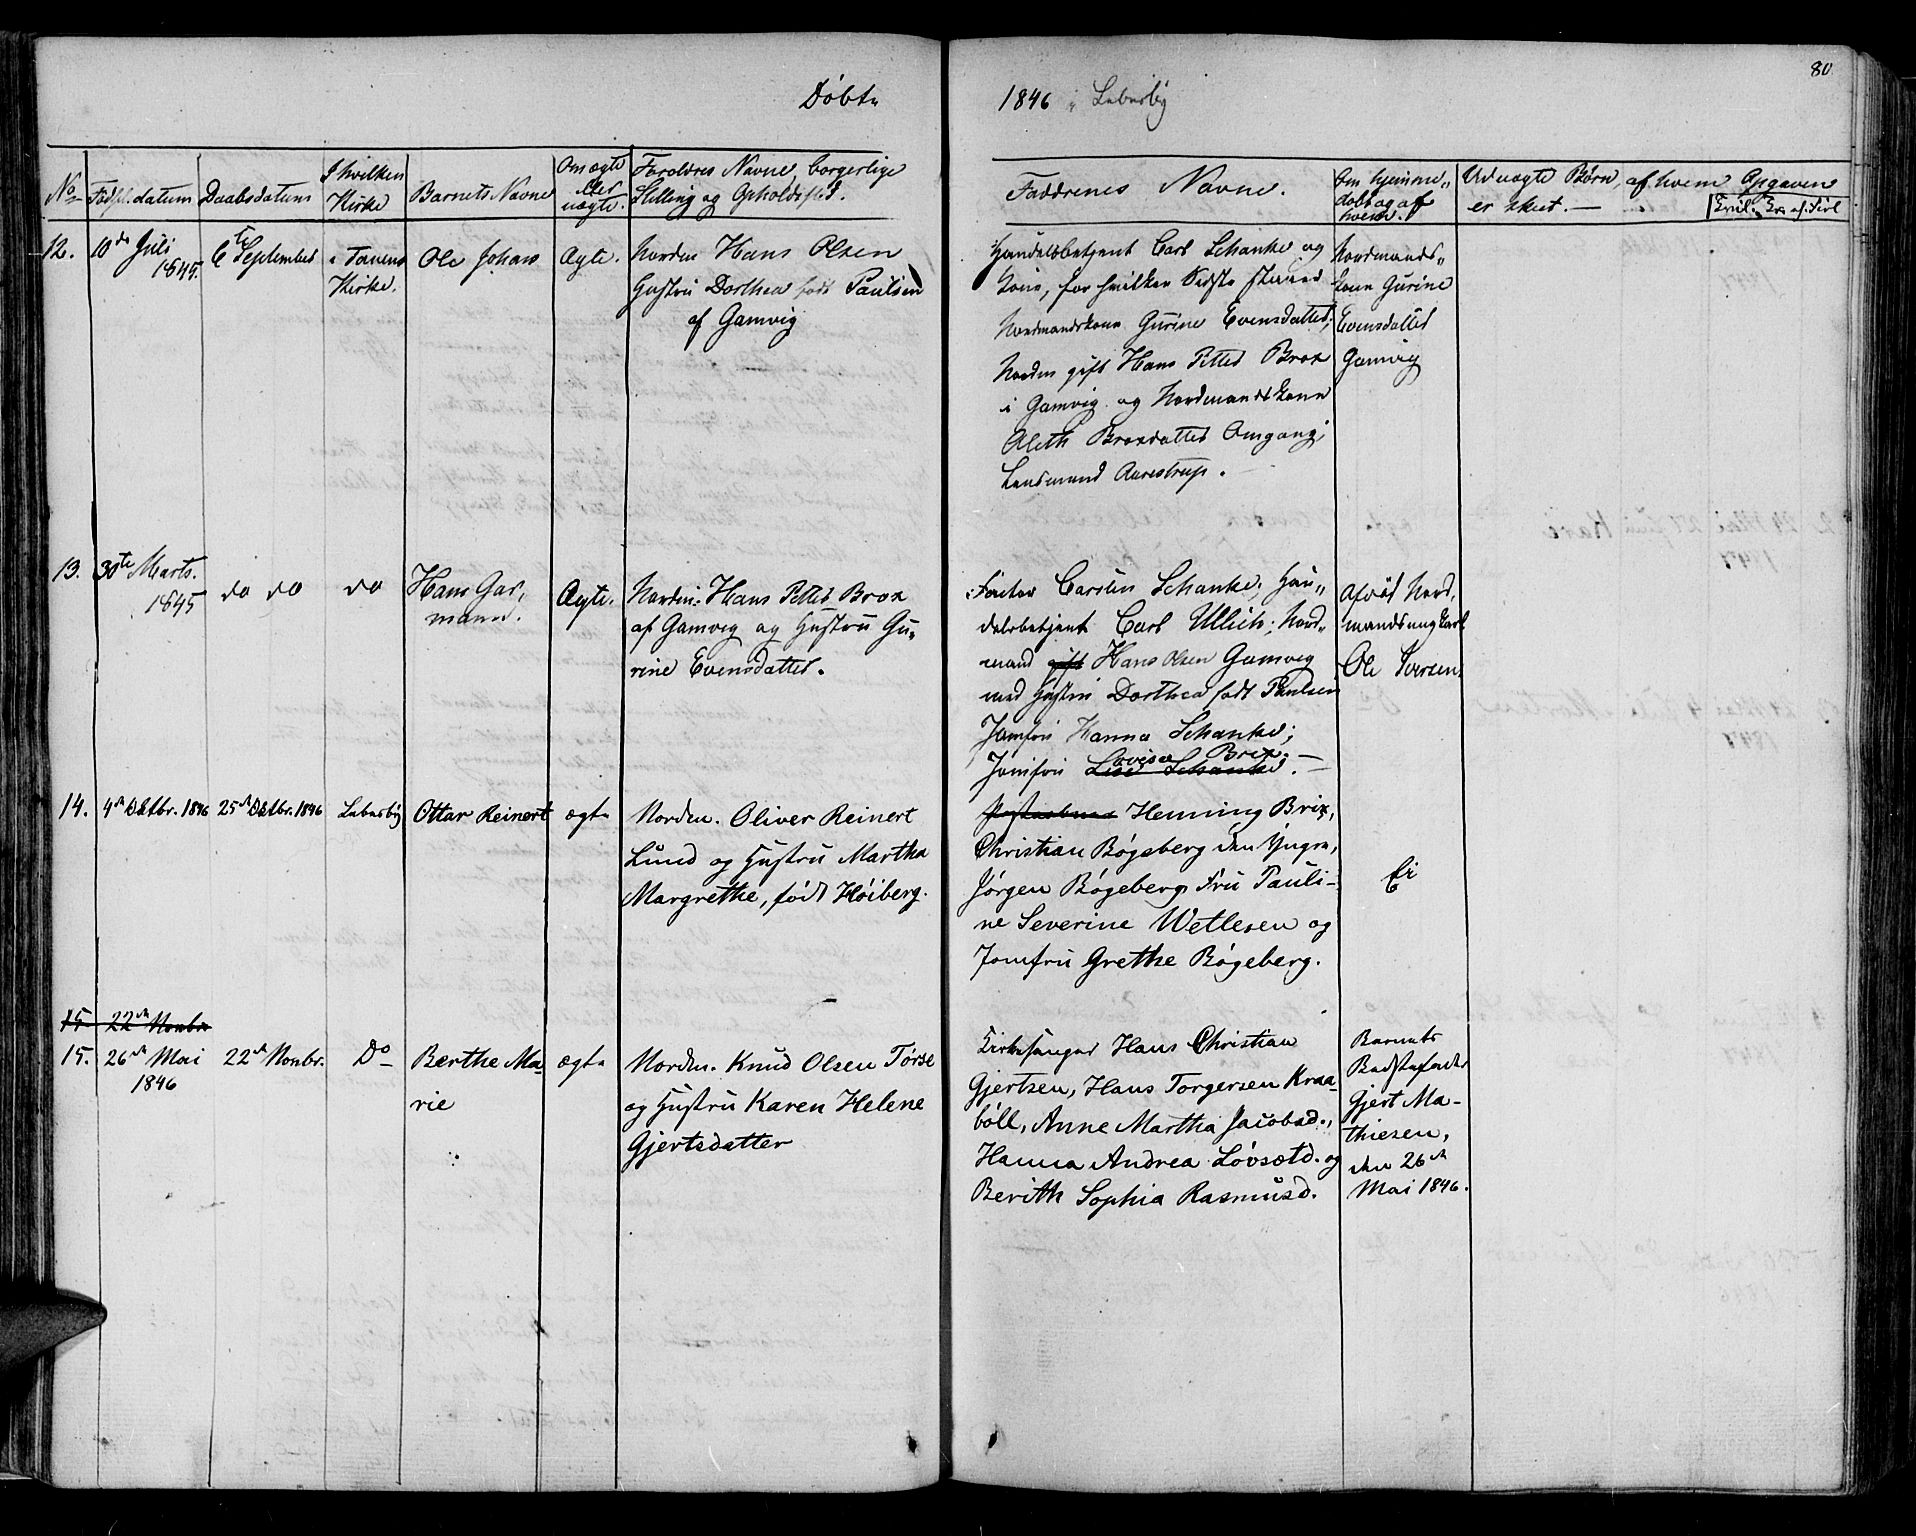 80
Døbte
1846 i Lebesby
No
Fødselsdatum
Daabsdatum
I hvilken Kirke
Barnets Navne
Om ægte eller uægte.
Forældres Navne, borgerlige
Stilling og Opholdssted.
Faddernes Navne.
Om hjemme-
døbt og af
hvem.
Uduægte Børn, af hvem Opgaven
er skeet. —
12.
10de Juli
1845.
6te September
i Tanens
Kirke.
Ole Johan
Ægte.
Nordm Hans Olsen
Hustru Dorthea født Paulsen
af Gamvig
Handelsbetjent Carl Schanke og
Kone, for hvilken Sidste staaed
Nordmandskone Gurine Evensdatter;
Nordm gift Hans Petter Brox
i Gamvig og Nordmandskone
Aleth Broxdatter Omgang;
Lensmand Aarestrup.
Nordmands-
kone Gurine
Evensdatter
Gamvig
13.
30te Marts.
1845
do do
do
Hans Gar-
mann.
Ægte.
Nordm: Hans Petter Brox
af Gamvig og Hustru Gu-
rine Evensdatter.
Factor Carsten Schanke; Han-
delsbetjent Carl Ullich; Nord-
mand gift Hans Olsen Gamvig
med Hustru Dorthea født Paulsen
Jomfru Hanna Schanke;
Lovise Brix
Jomfru Lise Schanke. —
Afdød Nord-
mandsungkarl
Ole Iversen
14.
4de Oktbr. 1846
25de Oktbr. 1846
Lebesby
Ottar Reinert
ægte
Nordm. Oliver Reinert
Lund og Hustru Martha
Margrethe, født Høiberg.
Henning Brix,
Christian Bøgeberg den Yngre,
Jørgen Bøgeberg, Fru Pauli-
ne Severine Wetlesen og
Jomfru Grethe Bøgeberg.
Ei
15. 22de Novbr
15.
26de Mai
1846
22de Novbr.
Do
Berthe Ma-
rie
ægte
Nordm. Knud Olsen Tørse
og Hustru Karen Helene
Gjertsdatter
Kirkesanger Hans Christian
Gjertsen, Hans Torgersen Kraa-
bøll, Anne Martha Jacobsd.,
Hanna Andrea Løvsetd. og
Berith Sophia Rasmusd.
Barnets
Bedstefader
Gjert Ma-
thiesen,
den 26de
Mai 1846.